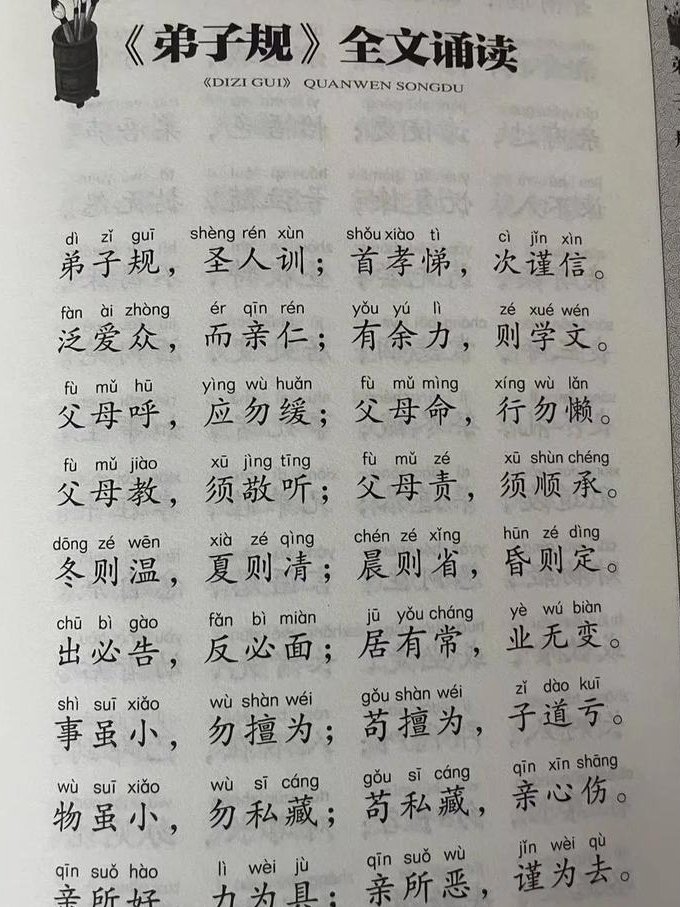 《弟子规》全文诵读
《DIZI GUI》 QUANWEN SONGDU
dì zǐ guī shèng rén xùn shǒu xiào tì cì jǐn xìn
弟子规，圣人训；首孝悌，次谨信。
fàn ài zhòng ér qīn rén yǒu yú lì zé xué wén
泛爱众，而亲仁；有余力，则学文。
fù mǔ hū yìng wù huǎn fù mǔ mìng xíng wù lǎn
父母呼，应勿缓；父母命，行勿懒。
fù mǔ jiào xū jìng tīng fù mǔ zé xū shùn chéng
父母教，须敬听；父母责，须顺承。
dōng zé wēn xià zé qìng chén zé xǐng hūn zé dìng
冬则温，夏则凊；晨则省，昏则定。
chū bì gào fǎn bì miàn jū yǒu cháng yè wú biàn
出必告，反必面；居有常，业无变。
shì suī xiǎo wù shàn wéi gǒu shàn wéi zǐ dào kuī
事虽小，勿擅为；苟擅为，子道亏。
wù suī xiǎo wù sī cáng gǒu sī cáng qīn xīn shāng
物虽小，勿私藏；苟私藏，亲心伤。
qīn suǒ hào lì wèi jù qīn suǒ wù jǐn wèi qù
亲所好，力为具；亲所恶，谨为去。